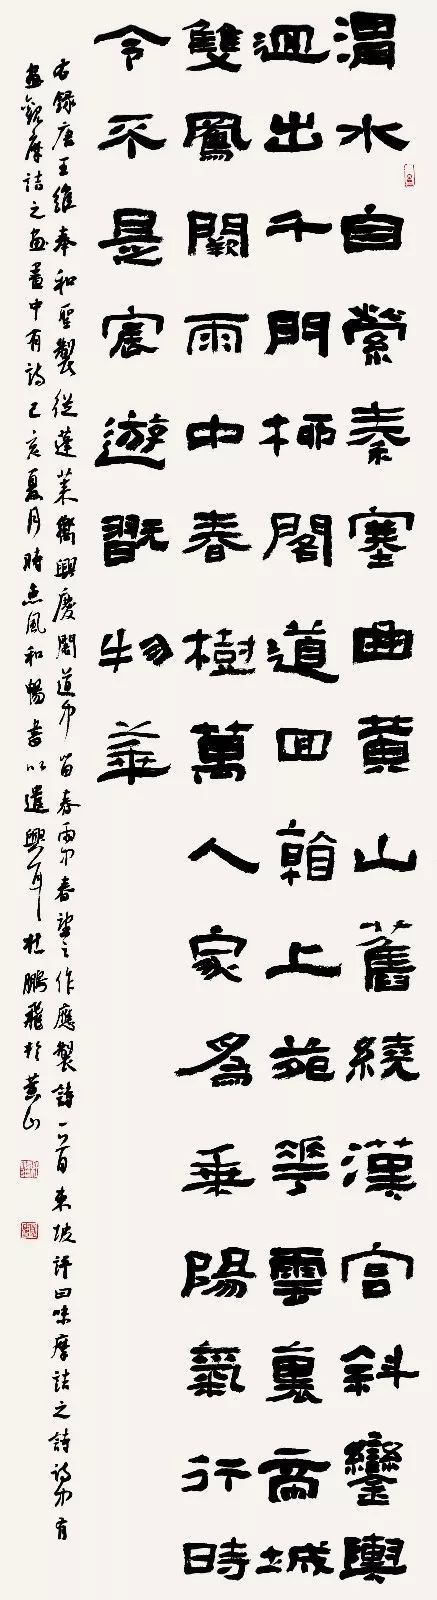 渭水自縈秦塞曲黃山舊繞漢宮斜鑾輿
迴出千門柳閣道回看上苑花雲裏帝城
雙鳳闕雨中春樹萬人家為乘陽氣行時
令不是宸遊翫物華
右錄唐王維奉和聖製從蓬萊嚮興慶閣道中留春雨中春望之作應製詩一首東坡評曰味摩詰之詩詩中有
畫觀摩詰之畫畫中有詩己亥夏月時惠風和暢書以遣興耳杜鵬飛於黃山